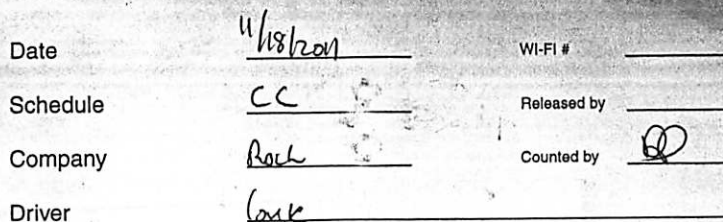 Date 11/18/2011 WI-FI #
Schedule CC Released by
Company Roch Counted by
Driver